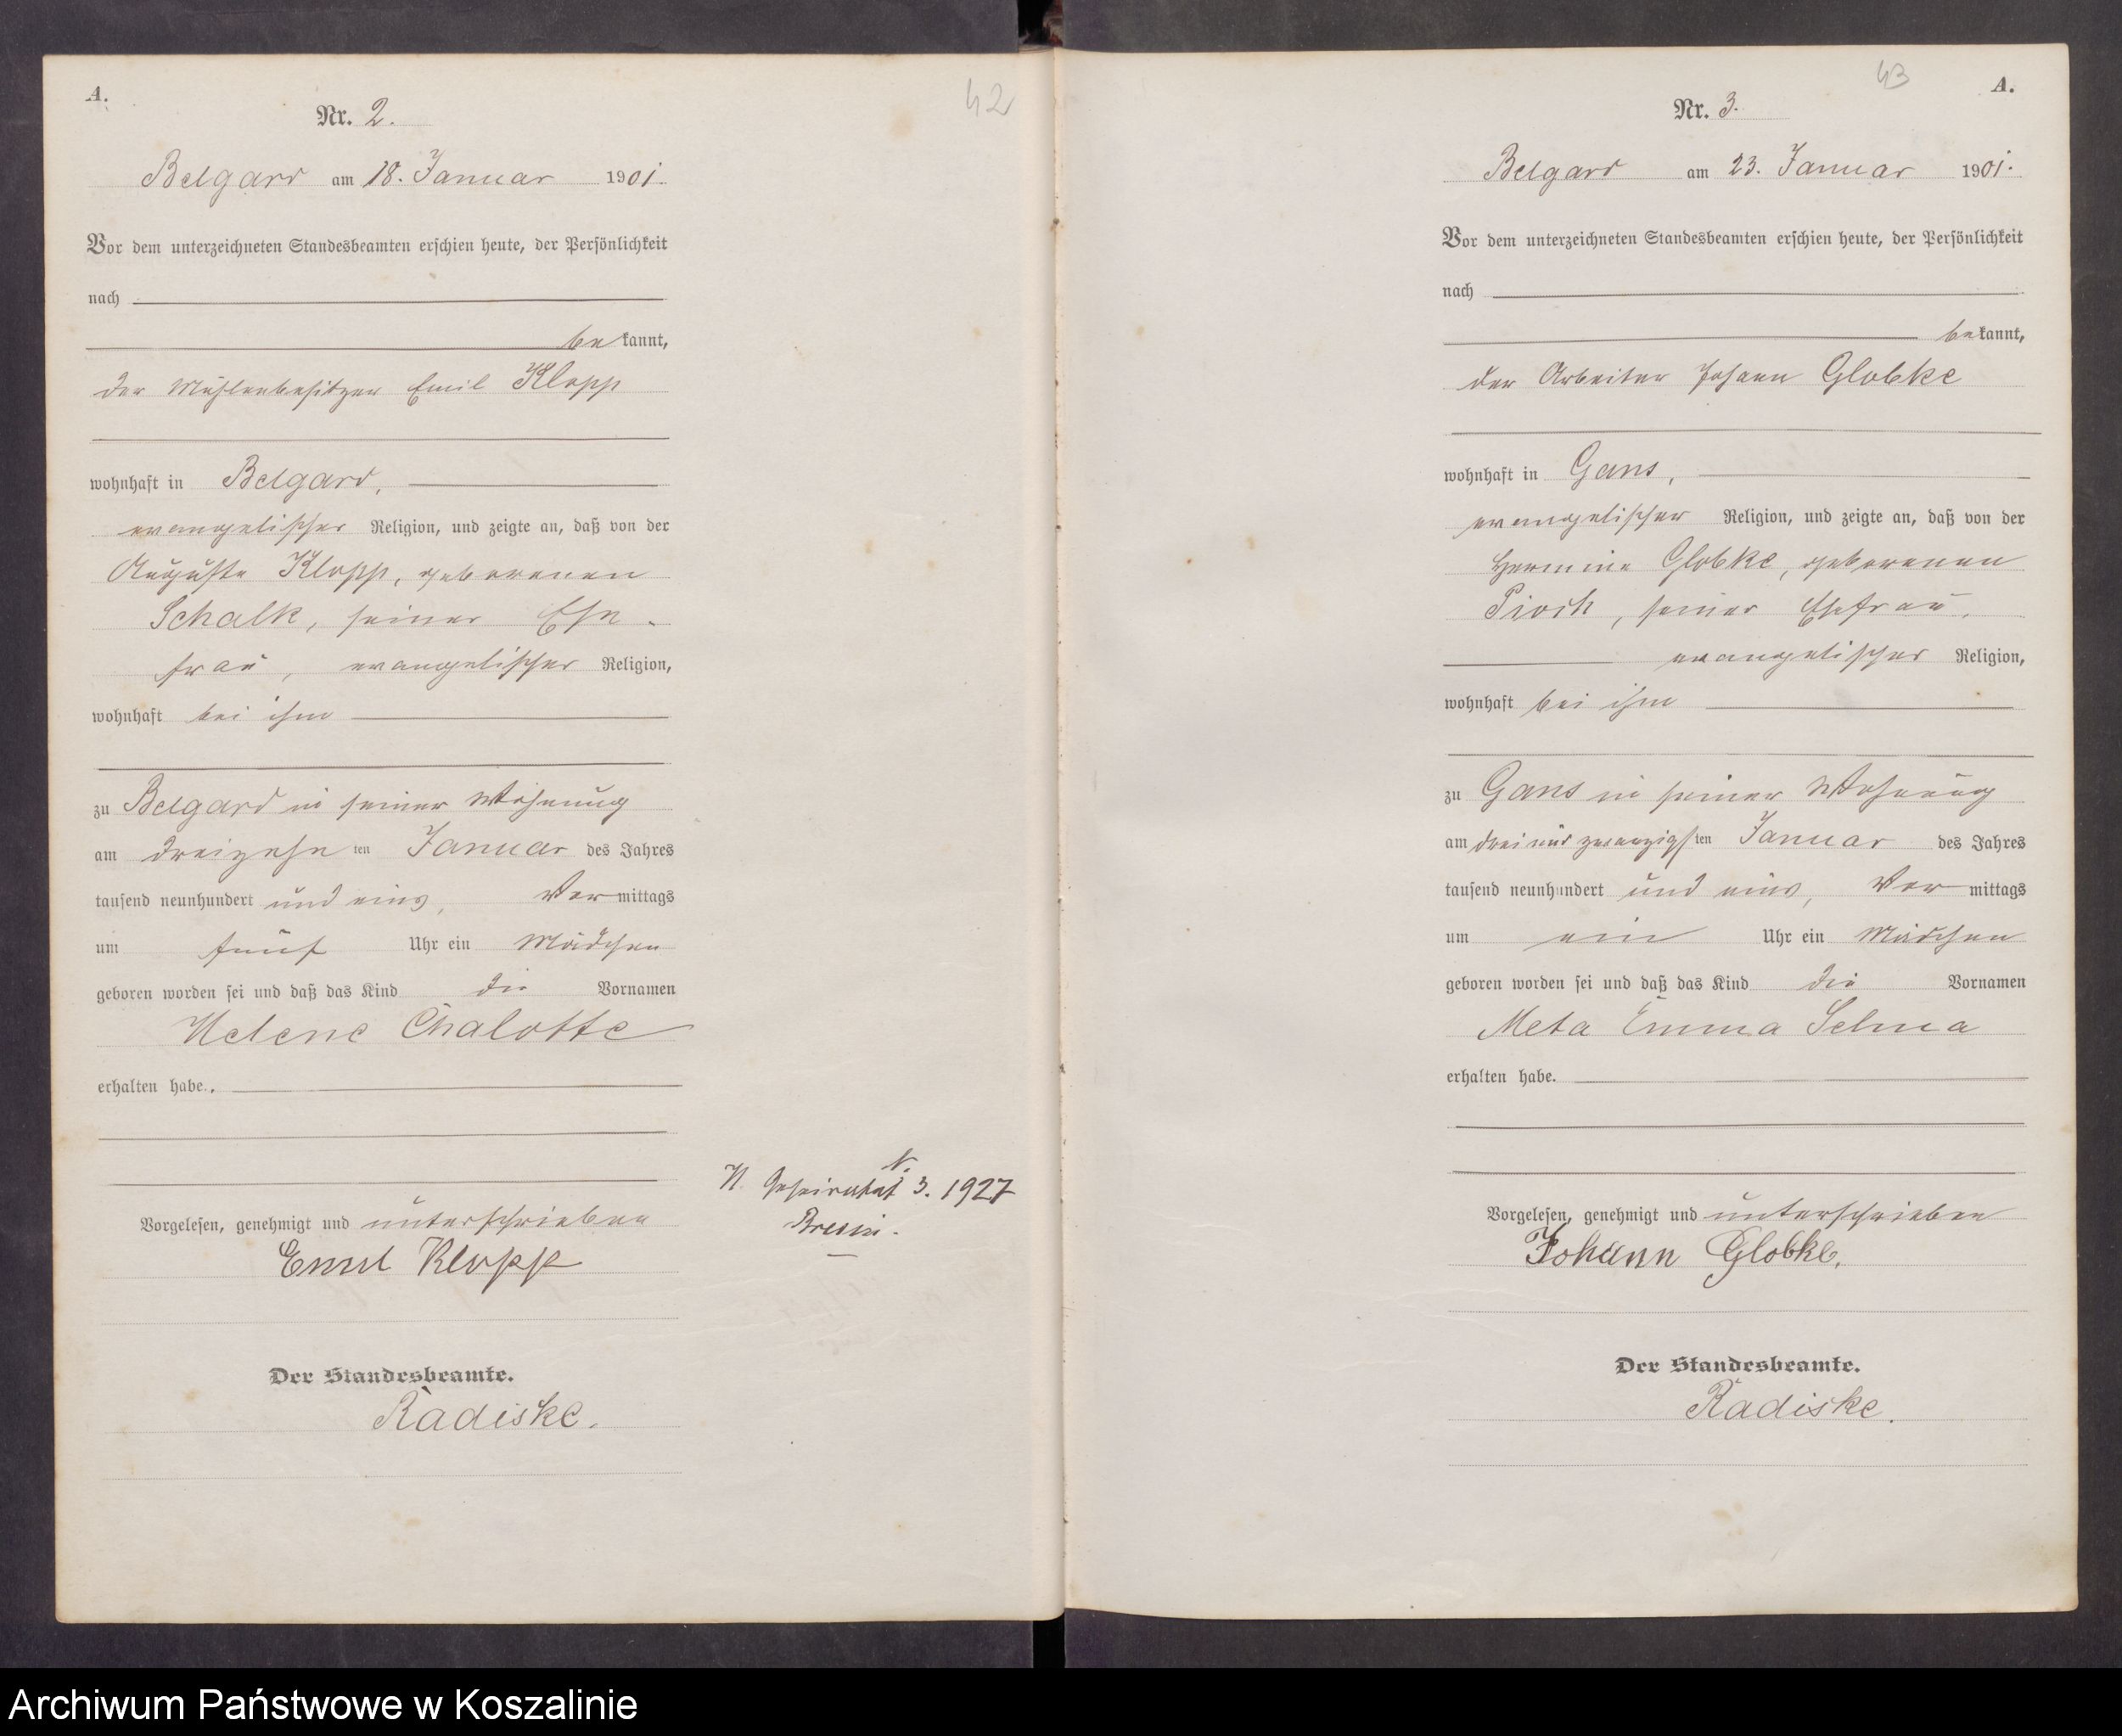 A.
42
Nr. 2.
Belgard am 18. Januar 1901.
Vor dem unterzeichneten Standesbeamten erschien heute, der Persönlichkeit
nach
bekannt,
der Mühlenbesitzer Emil Klopp
wohnhaft in Belgard,
evangelischer Religion, und zeigte an, daß von der
Auguste Klopp, geborenen
Schalk, seiner Ehe-
frau, evangelischer Religion,
wohnhaft bei ihm
zu Belgard in seiner Wohnung
am dreizehnten Januar des Jahres
tausend neunhundert und eins, Vormittags
um fünf Uhr ein Mädchen
geboren worden sei und daß das Kind die Vornamen
Helene Chalotte
erhalten habe.
Vorgelesen, genehmigt und unterschrieben
Emil Klopp
Der Standesbeamte.
Radiske.
geheiratet 3. 1927
43
A.
Nr. 3.
Belgard am 23. Januar 1901.
Vor dem unterzeichneten Standesbeamten erschien heute, der Persönlichkeit
nach
bekannt,
der Arbeiter Johann Globke
wohnhaft in Gans,
evangelischer Religion, und zeigte an, daß von der
Hermine Globke, geborenen
Pioch, seiner Ehefrau,
evangelischer Religion,
wohnhaft bei ihm
zu Gans in seiner Wohnung
am drei und zwanzigsten Januar des Jahres
tausend neunhundert und eins, Vormittags
um ein Uhr ein Mädchen
geboren worden sei und daß das Kind die Vornamen
Meta Emma Selma
erhalten habe.
Vorgelesen, genehmigt und unterschrieben
Johann Globke.
Der Standesbeamte.
Radiske.
Archiwum Państwowe w Koszalinie